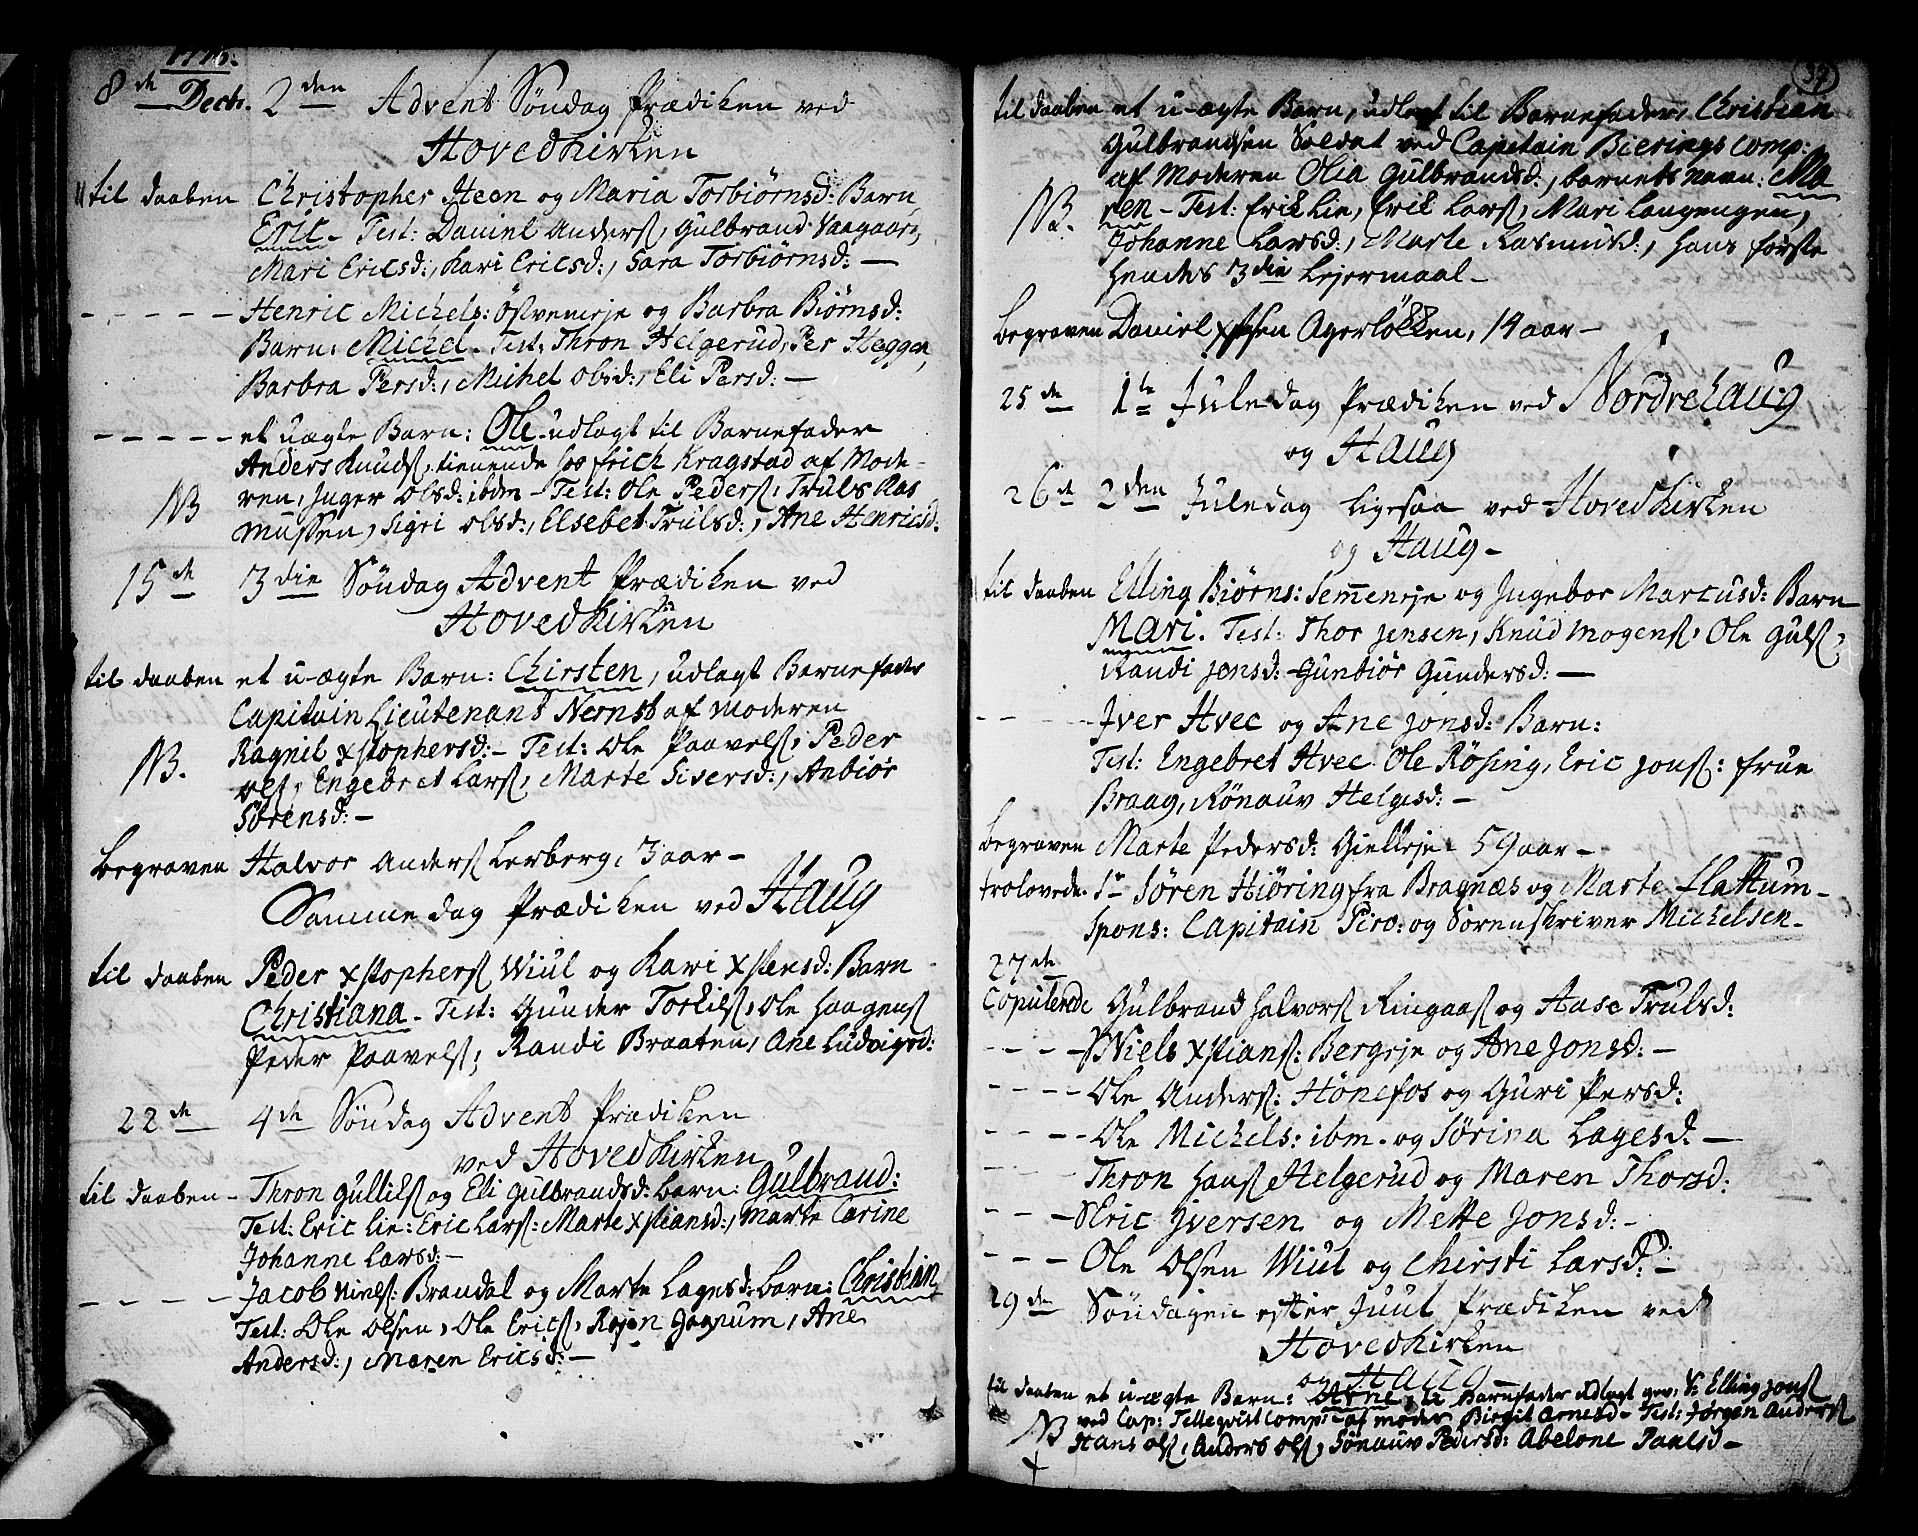 8de Decb. 2den Advent Søndag Prædiken ved
Hovedkirken
til daaben Christopher Steen og Maria Torbiørnsd: Barn
Eric - Test: Daniel Anders, Gulbrand Vaagaard,
Mari Ericsd:, Kari Ericsd:, Sara Torbiørnsd: -
- - - - - Henric Michels: Østveneje og Barbra Biørnsd:
Barn: Michel - Test: Thron Helgerud, Per Heggen,
Barbra Persd:, Michel Olsd:, Eli Persd: -
- - - - - et uægte Barn: Ole - udlagt til Barnefader
Anders Knuds, tienende hos Erich Kragstad af Mode-
NB ren, Inger Olsd: ibdm - Test: Ole Peders, Truls Ras
mussen, Sigri Olsd:, Elsebet Trulsd:, Ane Henricsd.
15de 3die Søndag Advent Prædiken ved
Hovedkirken
til daaben et u-ægte Barn: Chirsten, udlagt Barnefader
Capitain Lieutenant Nernst af Moderen
NB. Ragnil Xstophersd: - Test: Ole Paavels, Peder
Ols, Engebret Lars, Marte Siversd:, Anbiør
Sørensd: -
begraven Halvor Anders Lerberg, 3 aar -
Samme dag Prædiken ved Haug
til daaben Peder Xstophers Wiul og Kari Xstensd: Barn
Christiana - Test: Gunder Torkils, Ole Haagens
Peder Paavels, Randi Braaten, Ane Ludvigsd:
22de 4de Søndag Advent Prædiken
ved Hovedkirken
til daaben - Thron Gulliks og Eli Gulbrandsd: barn: Gulbrand:
Test: Eric Lie: Eric Lars: Marte Xstiansd:, Marte Carine
Johanne Larsd: -
- - - - Jacob Niels: Brandal og Marte Lagesd: barn: Christian
Test: Ole Olsen, Ole Erics, Rejen, Ane
Andersd:, Maren Ericsd: -
37
til daaben et u-ægte Barn, udlagt til Barnefader, Christian
Gulbrandsen Soldat ved Capitain Bierings Comp:
af Moderen Olia Gulbrandsd:, barnets navn: Ma
NB. ren - Test: Erik Lie, Erik Lars, Mari Langengen,
Johanne Larsd:, Marte Rasmusd:, hans første
hendes 3die Lejermaal -
begraven Daniel Xstsen Agerløkken, 14 aar -
25de 1te Juledag Prædiken ved Nordrehaug
og Haug
26de 2den Juledag ligesaa ved Hovedkirken
og Haug -
til daaben Elling Biørns: Semeneje og Ingebor Marcusd: Barn
Mari. Test: Thor Jensen, Knud Mogens, Ole Guls,
Randi Jensd: Gunbiør Gundersd: -
- - - - Iver Hvec og Ane Jonsd: Barn:
Test: Engebret Hvec Ole Røsing, Eric Jons: frue
Braag, Rønauv Helgesd: -
begraven Marte Pedersd: Gielleje 59 aar -
trolovede. Sr Søren Hiøring fra Bragnæs og Marte Flattum -
Spons: Capitain Piro: og Sorenskriver Michelsen -
27de
Copulerede Gulbrand Halvors Ringaas og Aase Trulsd:
- - - - Niels Xstians: Bergeje og Ane Jonsd: -
- - - - Ole Anders: Hønefos og Guri Persd:
- - - - Ole Michels: ibm. og Sørina Lagesd. -
- - - - Thron Hans Helgerud og Maren Thorsd:
- - - - Eric Iversen og Mette Jonsd: -
- - - - Ole Olsen Wiul og Chirsti Larsd: -
29de Søndagen efter Juul Prædiken ved
Hovedkirken
og Haug
til daaben et u-ægte Barn: Arne, til Barnefader udlagt gev: S: Elling Jons
NB ved Cap: Tellequist Comp: - af moder Birgit Arnesd - Test: Jørgen Anders
Hans Ols, Anders Ols, Sønauv Pedersd: Abelone Paulsd -